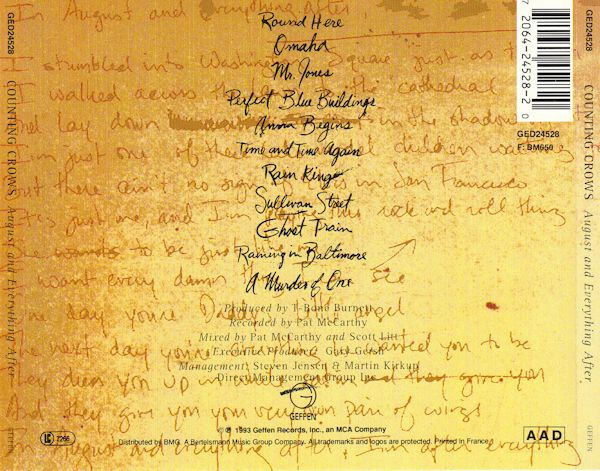 GED24528
COUNTING CROWS August and Everything After
GEFFEN
In August and everything after
I stumbled into Washington Square just as
I walked across the cathedral
down in the shadow
I one of the children
but there ain't no sign of in San Francisco
just me and I'm this rock and roll thing
to be just
want every damn
day you're angel
next day you're you to be
you up and they give you
And they give you your very own pair of wings
August and everything after, I'm after everything
Round Here
Omaha
Mr. Jones
Perfect Blue Buildings
Anna Begins
Time and Time Again
Rain King
Sullivan Street
Ghost Train
Raining in Baltimore
A Murder of One
Produced by T-Bone Burnett
Recorded by Pat McCarthy
Mixed by Pat McCarthy and Scott Litt
Executive Producer Gary Gersh
Management: Steven Jensen & Martin Kirkup
Direct Management Group Inc.
GEFFEN
℗ 1993 Geffen Records, Inc., an MCA Company
Distributed by BMG. A Bertelsmann Music Group Company. All trademarks and logos are protected. Printed in France.
LC 7266
7 2064-24528-2 0
GED24528
F: BM650
AAD
GED24528
COUNTING CROWS August and Everything After
GEFFEN